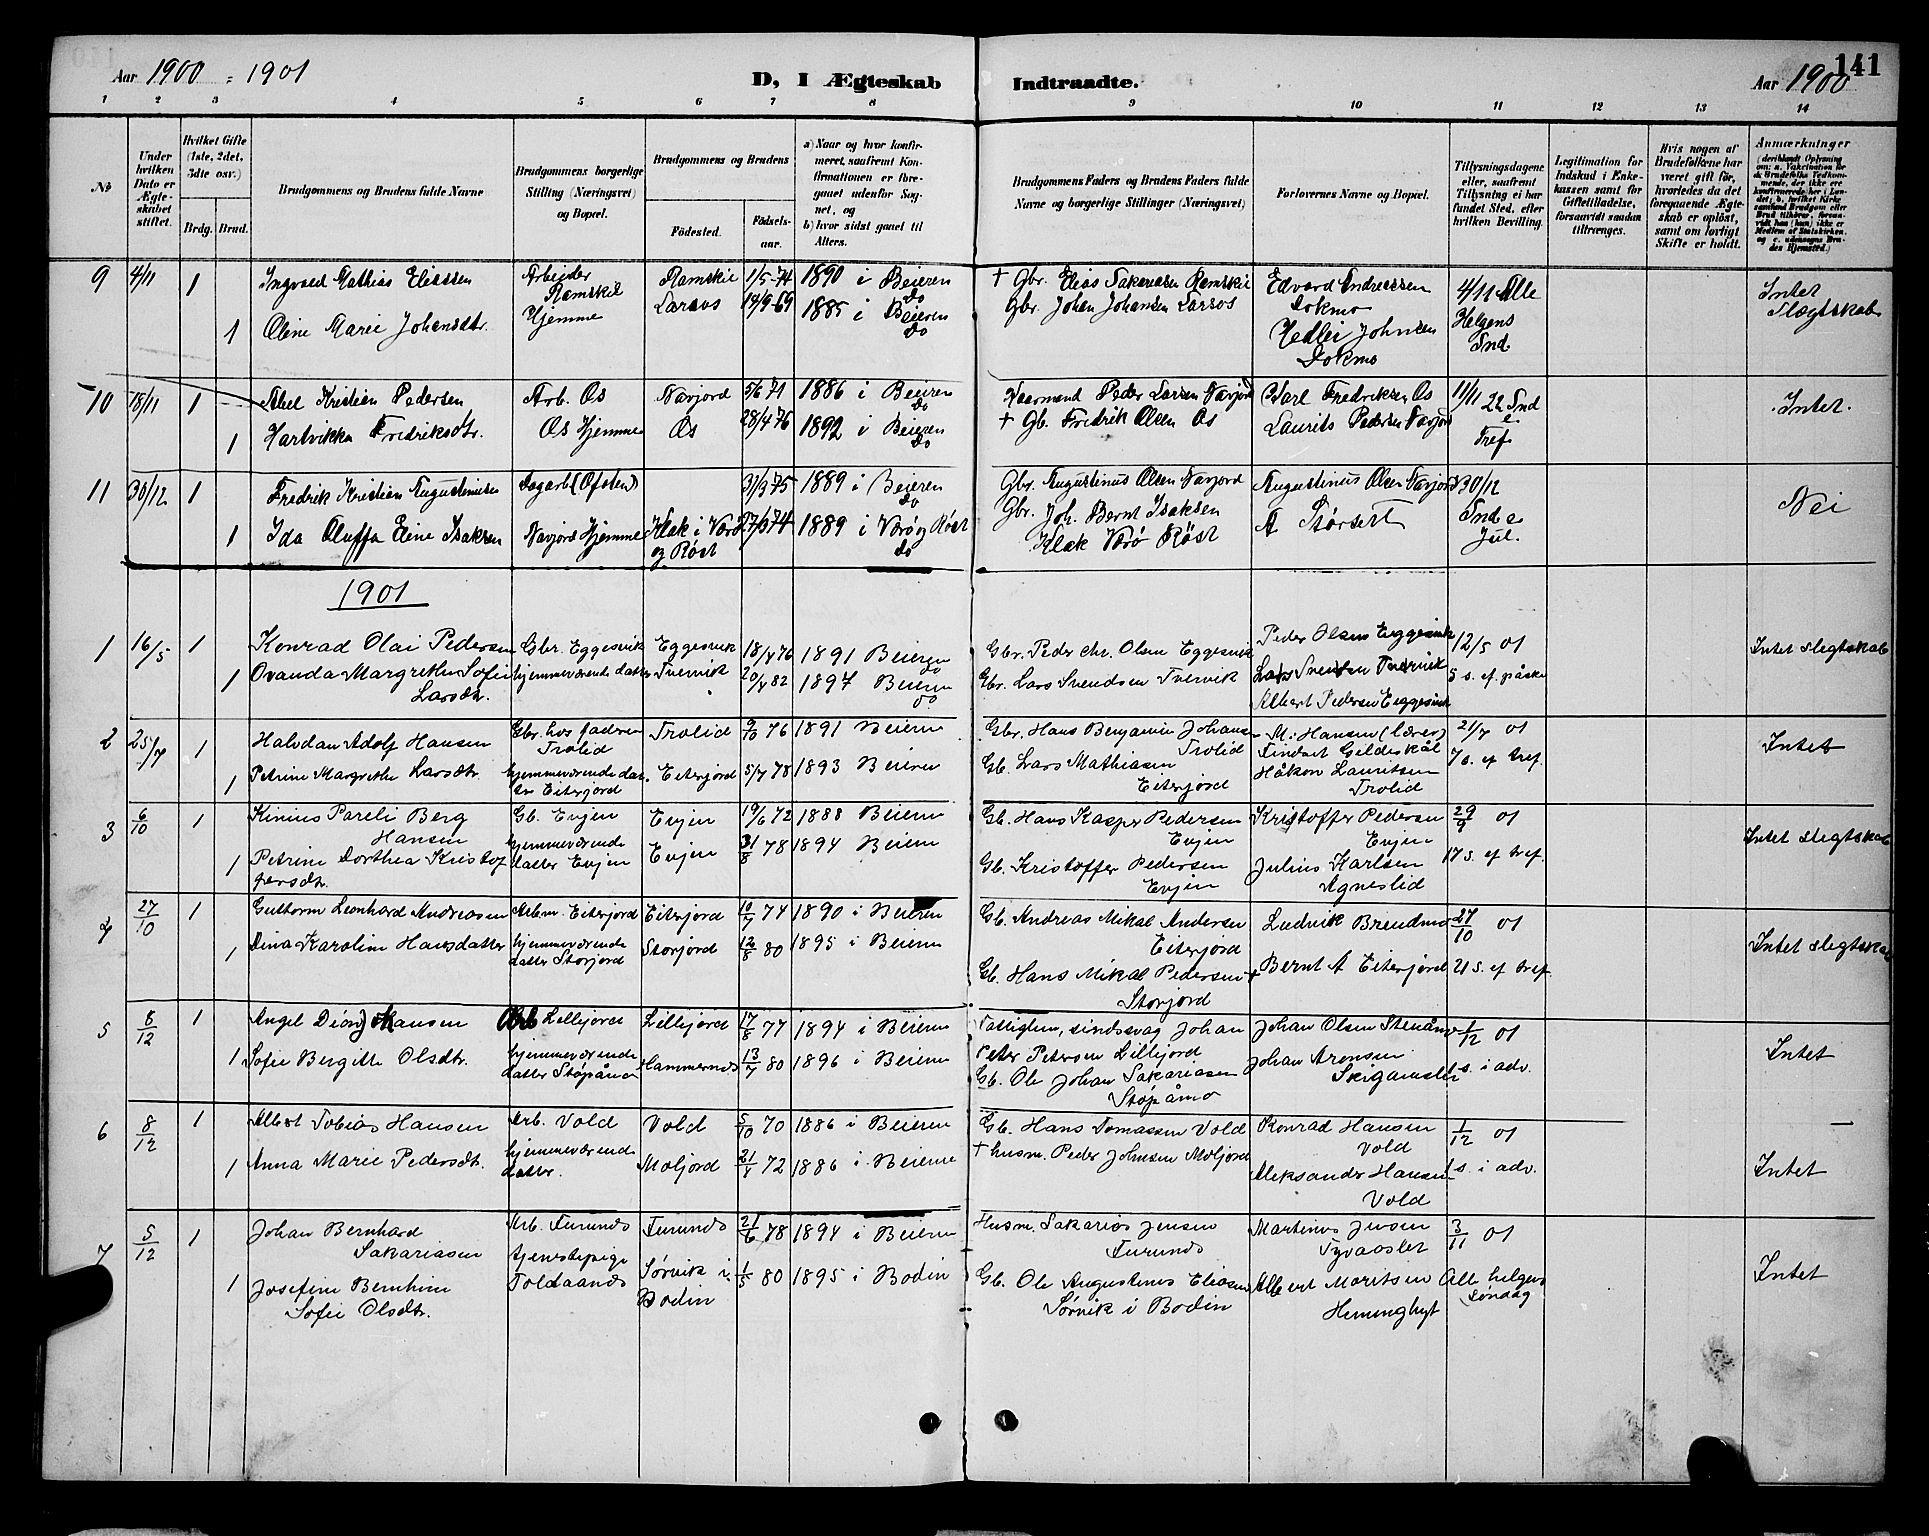 Aar 1900 = 1901 D, I Ægteskab Indtraadte. Aar 1900 141
1 2 3 4 5 6 7 8 9 10 11 12 13 14
No
Under hvilken Dato er Ægteskabet stiftet.
Hvilket Gifte (1ste, 2det, 3dte osv.)
Brdg. Brud.
Brudgommens og Brudens fulde Navne
Brudgommens borgerlige Stilling (Næringsvei) og Bopæl.
Brudgommens og Brudens
Fødested.
Fødselsaar.
a) Naar og hvor konfirmeret, saafremt Konfirmationen er foregaaet udenfor Sognet, og
b) hvor sidst gaaet til Alters.
Brudgommens Faders og Brudens Faders fulde Navne og borgerlige Stillinger (Næringsvei)
Forlovernes Navne og Bopæl.
Tillysningsdagene eller, saafremt Tillysning ei har fundet Sted, efter hvilken Bevilling.
Legitimation for Indskud i Enkekassen samt for Giftetilladelse, forsaavidt saadan tiltrænges.
Hvis nogen af Brudefolkene har været gift før, hvorledes da det foregaaende Ægteskab er opløst, samt om lovligt Skifte er holdt.
Anmærkninger
9 4/11 1 Ingvald Mathias Eliassen Arbeider Ramskil Ramskil 1/5-74 1890 i Beieren do + Gbr. Elias Sakariasen Ramskil Edvard Andreassen Dokmo 4/11 Alle
1 Oline Marie Johansdtr. Hjemme Larsos 19/9-69 1885 i Beieren do Gbr. Johan Johansen Larsos Hedlei Johnsen Dokmo Helgens Snd. Intet Slægtskab
10 18/11 1 Abel Kristian Pedersen Arb. Os Navjord 5/6 71 1886 i Beieren do Kaarmand Peder Larsen Navjord Carl Fredriksen Os 11/11 22 Snd e
1 Hartvikka Fredriksdtr. Os Hjemme Os 28/4 76 1892 i Beieren do + Gb. Fredrik Olsen Os Laurits Pedersen Navjord Tref Intet.
11 30/12 1 Fredrik Kristian Augustinusen Dagarb (Ofoten) 31/3 75 1889 i Beieren do Gbr. Augustinus Olsen Navjord Augustinus Olsen Navjord 30/12
1 Ida Oluffa Eine Isaksen Navjord Hjemme Klak i Værø og Røst 27/6 74 1889 i Værø og Røst do Gbr. Joh. Bernt Isaksen Klak Værø Røst A Størsett Snd e Jul. Nei
1901
1 16/5 1 Konrad Olai Pedersen Gbr. Eggesvik Eggesvik 18/4 76 1891 Beieren do Gbr. Peder Chr. Olsen Eggesvik Peder Olsen Eggesvik 12/5 01 Intet slegtskab
1 Ovanda Margrethe Sofie Larsdtr. hjemmeværende datter Tvervik 20/4 82 1897 Beieren do Gbr. Lars Svendsen Tvervik Lars Svendsen Tvervik 5 s. ef. påske
Albert Pedersen Eggesvik
2 25/7 1 Halvdan Adolf Hansen Gbr. hos faderen Trolid Trolid 9/10 76 1891 Beieren Gbr. Hans Benjamin Johansen Trolid M. Hansen (lærer) Findset Gildeskål 21/7 01
1 Petrine Margrethe Larsdtr. hjemmeværende datter Eiterjord Eiterjord 5/7 78 1893 Beieren Gb. Lars Mathiasen Eiterjord Håkon Lauritsen Trolid 7 s. ef tref. Intet
3 6/10 1 Kinius Pareli Berg Hansen Gb. Evjen Evjen 19/6 72 1888 Beieren Gb. Hans Kasper Pedersen Evjen Kristoffer Pedersen Evjen 29/9 01
1 Petrine Dorthea Kristoffersdtr. hjemmeværende datter Evjen Evjen 31/8 78 1894 Beieren Gb. Kristoffer Pedersen Evjen Julius Karlsen Agneslid 17 s. ef tref. Intet slegtskab
4 27/10 1 Guttorm Leonhard Andreasen Arbm. Eiterjord Eiterjord 10/7 74 1890 i Beieren Gb. Andreas Mikal Andersen Eiterjord Ludvik Brendmo 27/10 01
1 Dina Karoline Hansdatter hjemmeværende datter Storjord Storjord 12/8 80 1895 i Beieren Gb. Hans Mikal Pedersen Storjord Bernt A Eiterjord 21 s. ef tref. Intet slegtskab
5 8/12 1 Angel Dion Hansen Arb Lillejord Lillejord 17/8 77 1894 i Beieren Fattiglem, sindssvag Johan Peter Petersen Lillejord Johan Olsen Stenåmo 1/12 01
1 Sofie Bergitte Olsdtr. hjemmeværende datter Støpåmo Hammernes 13/7 80 1896 i Beieren Gb. Ole Johan Sakariasen Støpåmo Johan Aronsen 1 s. i adv. Intet
6 8/12 1 Albert Tobias Hansen Arb. Vold Vold 5/10 70 1886 i Beieren Gb. Hans Tomassen Vold Konrad Hansen Vold 1/12 01
1 Anna Marie Pedersdtr. hjemmeværende datter. Moljord 21/4 72 1886 i Beieren + husm. Peder Johnsen Moljord Aleksander Hansen Vold 1 s. i adv. Intet
7 5/12 1 Johan Bernhard Sakariasen Arb. Furunes Furunes 21/6 78 1894 i Beieren Husm. Sakarias Jensen Furunes Martinus Jensen Tvaaslet 3/11 01
1 Josefine Bernhine Sofie Olsdtr. tjenestepige Toldaanes Sørvik i Bodin 1/5 80 1895 i Bodin Gb. Ole Augustinus Eliasen Sørvik i Bodin Albert Moritsen Heminghyt Alle helgens søndag Intet